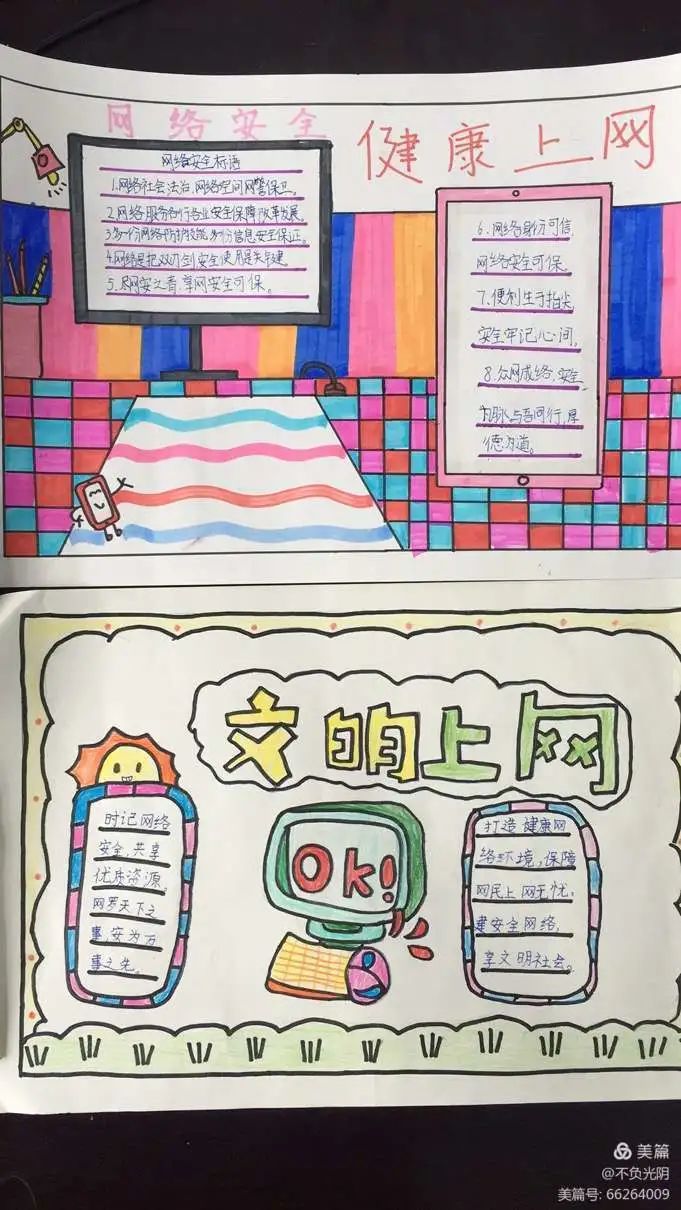 网络安全
健康上网
网络安全标语
1.网络社会法治,网络空间网警保卫。
2.网络服务各行各业安全保障改革发展
3.多一份网络防护技能,多份信息安全保证。
4.网络是把双刃剑,安全使用是关键。
5.尽网安之责,享网安全可保。
6.网络身份可信
网络安全可保。
7.便利生于指尖
安全牢记心间。
8.众网成络,安全
为脉与吾同行,厚
德为道。
文明上网
时记网络
安全,共享
优质资源。
网罗天下之
事,安为万
事之先。
Ok!
打造健康网
络环境,保障
网民上网无忧,
建安全网络,
享文明社会。
美篇
@不负光阴
美篇号: 66264009